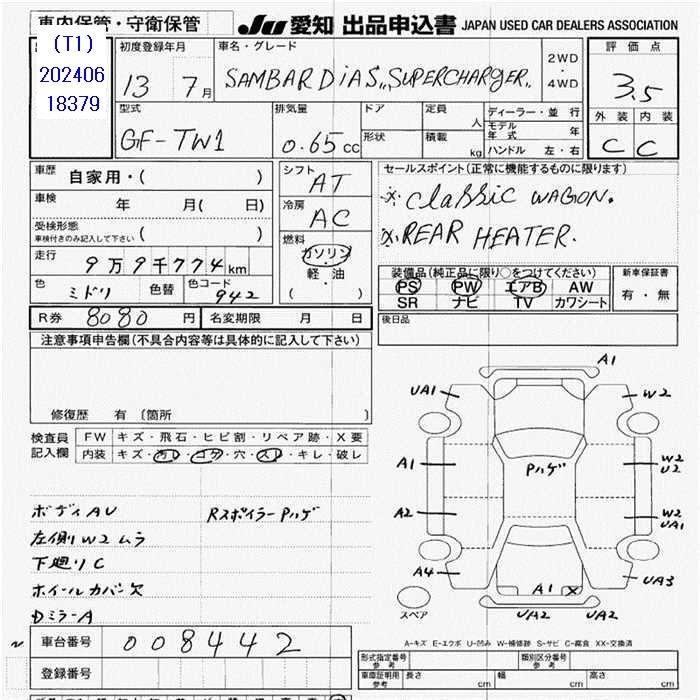 車内保管・守衛保管
JU 愛知 出品申込書 JAPAN USED CAR DEALERS ASSOCIATION
(T1)
202406
18379
初度登録年月
13 7月
車名・グレード
SAMBAR DiAS, SUPERCHARGER.
2WD
・
4WD
評価点
3.5
外装 内装
C C
型式
GF-TW1
排気量
0.65cc
ドア
形状
定員
人
積載
kg
ディーラー・並行
モデル年式 年
ハンドル 左・右
車歴 自家用・( )
車検 年 月( 日)
受検形態
車検付きのみ記入して下さい ( )
走行 9万9千774km
色 ミドリ 色替 色コード 942
シフト
AT
冷房
AC
燃料
ガソリン
・
軽・油
( )
セールスポイント(正常に機能するものに限ります)
※ classic WAGON.
※ REAR HEATER.
装備品(純正品に限り○をつけてください)
PS PW エアB AW
SR ナビ TV カワシート
新車保証書
有・無
R券 8080 円 名変期限 月 日
後日品
注意事項申告欄(不具合内容等は具体的に記入して下さい)
修復歴 有 (箇所 )
検査員記入欄
FW キズ・飛石・ヒビ割・リペア跡・X要
内装 キズ・汚レ・コゲ・穴・スレ・キレ・破レ
ボディAU Rスポイラー Pハゲ
左側W2ムラ
下廻りC
ホイールカバー欠
DミラーA
A1
UA1
W2
A1
W2
U2
Pハゲ
A2
W2
UA1
A4
UA3
A1 X
UA2 UA2
スペア
A-キズ E-エクボ U-凹み W-補修跡 S-サビ C-腐食 XX-交換済
車台番号 008442
登録番号
形式指定番号
参考
類別区分番号
参考
車庫証明用
参考
長さ cm 幅 cm 高さ cm